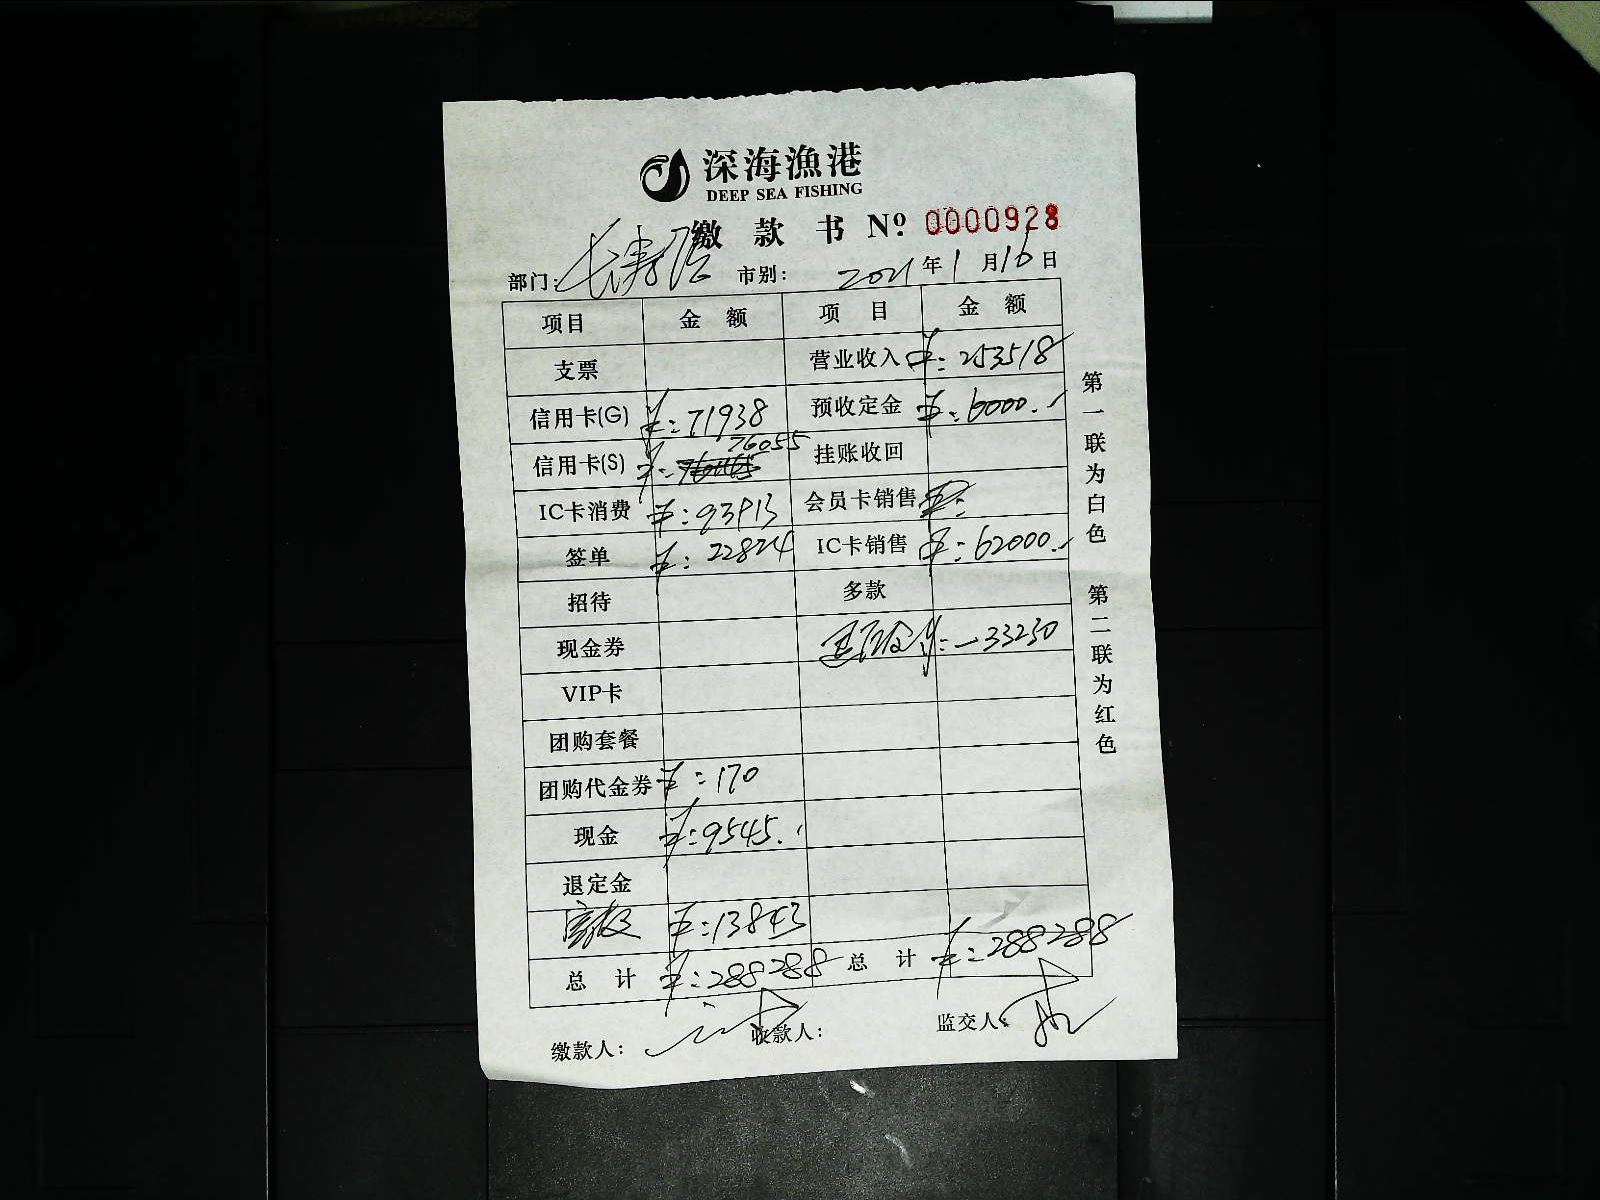 深海漁港
DEEP SEA FISHING
缴款书 Nº 0000928
部门: 市别: 2021年1月16日
项目 金额 项目 金额
支票 营业收入 ¥:253518
信用卡(G) ¥:71938 预收定金 ¥:6000.
信用卡(S) ¥: 76055 挂账收回
IC卡消费 ¥:93913 会员卡销售
签单 ¥:22824 IC卡销售 ¥:62000.
招待 多款
现金券 ¥:-33230
VIP卡
团购套餐
团购代金券 ¥:170
现金 ¥:9545.
退定金
¥:13843
总计 ¥:288288 总计 ¥:288288
缴款人: 收款人: 监交人:
第一联为白色 第二联为红色